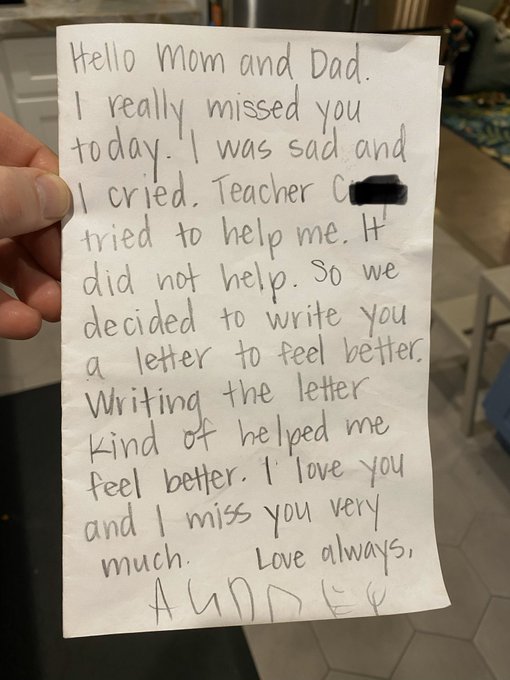 Hello Mom and Dad.
I really missed you
today. I was sad and
I cried. Teacher
tried to help me. It
did not help. So we
decided to write you
a letter to feel better.
Writing the letter
kind of helped me
feel better. I love you
and I miss you very
much. Love always,